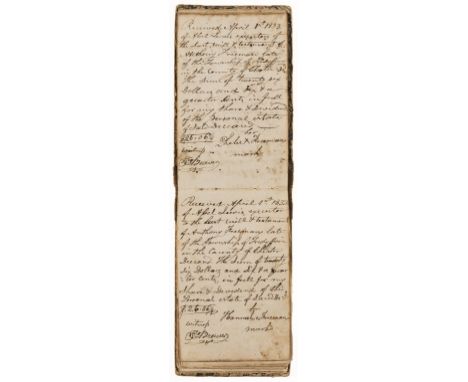 Received April 1st 1833
of Abel Lewis executor of
the Last will & testament of
Anthony Freeman late
of the Township of
in the County of
The Sum of twenty six
Dollars and Six & a
quarter Cents in full
for my Share & Dividend
of the Personal estate
of Said Deceased
$26.06¼ her
Freeman
witness mark
Received April 1st
of Abel Lewis executor
to the Last will & testament
of Anthony Freeman late
of the Township of
in the County of
Deceased The Sum of twenty
Six Dollars and Six & a quar
ter cents, in full for my
Share & Dividend of the
Personal estate of
$26.06¼
Hannah Freeman
witness mark